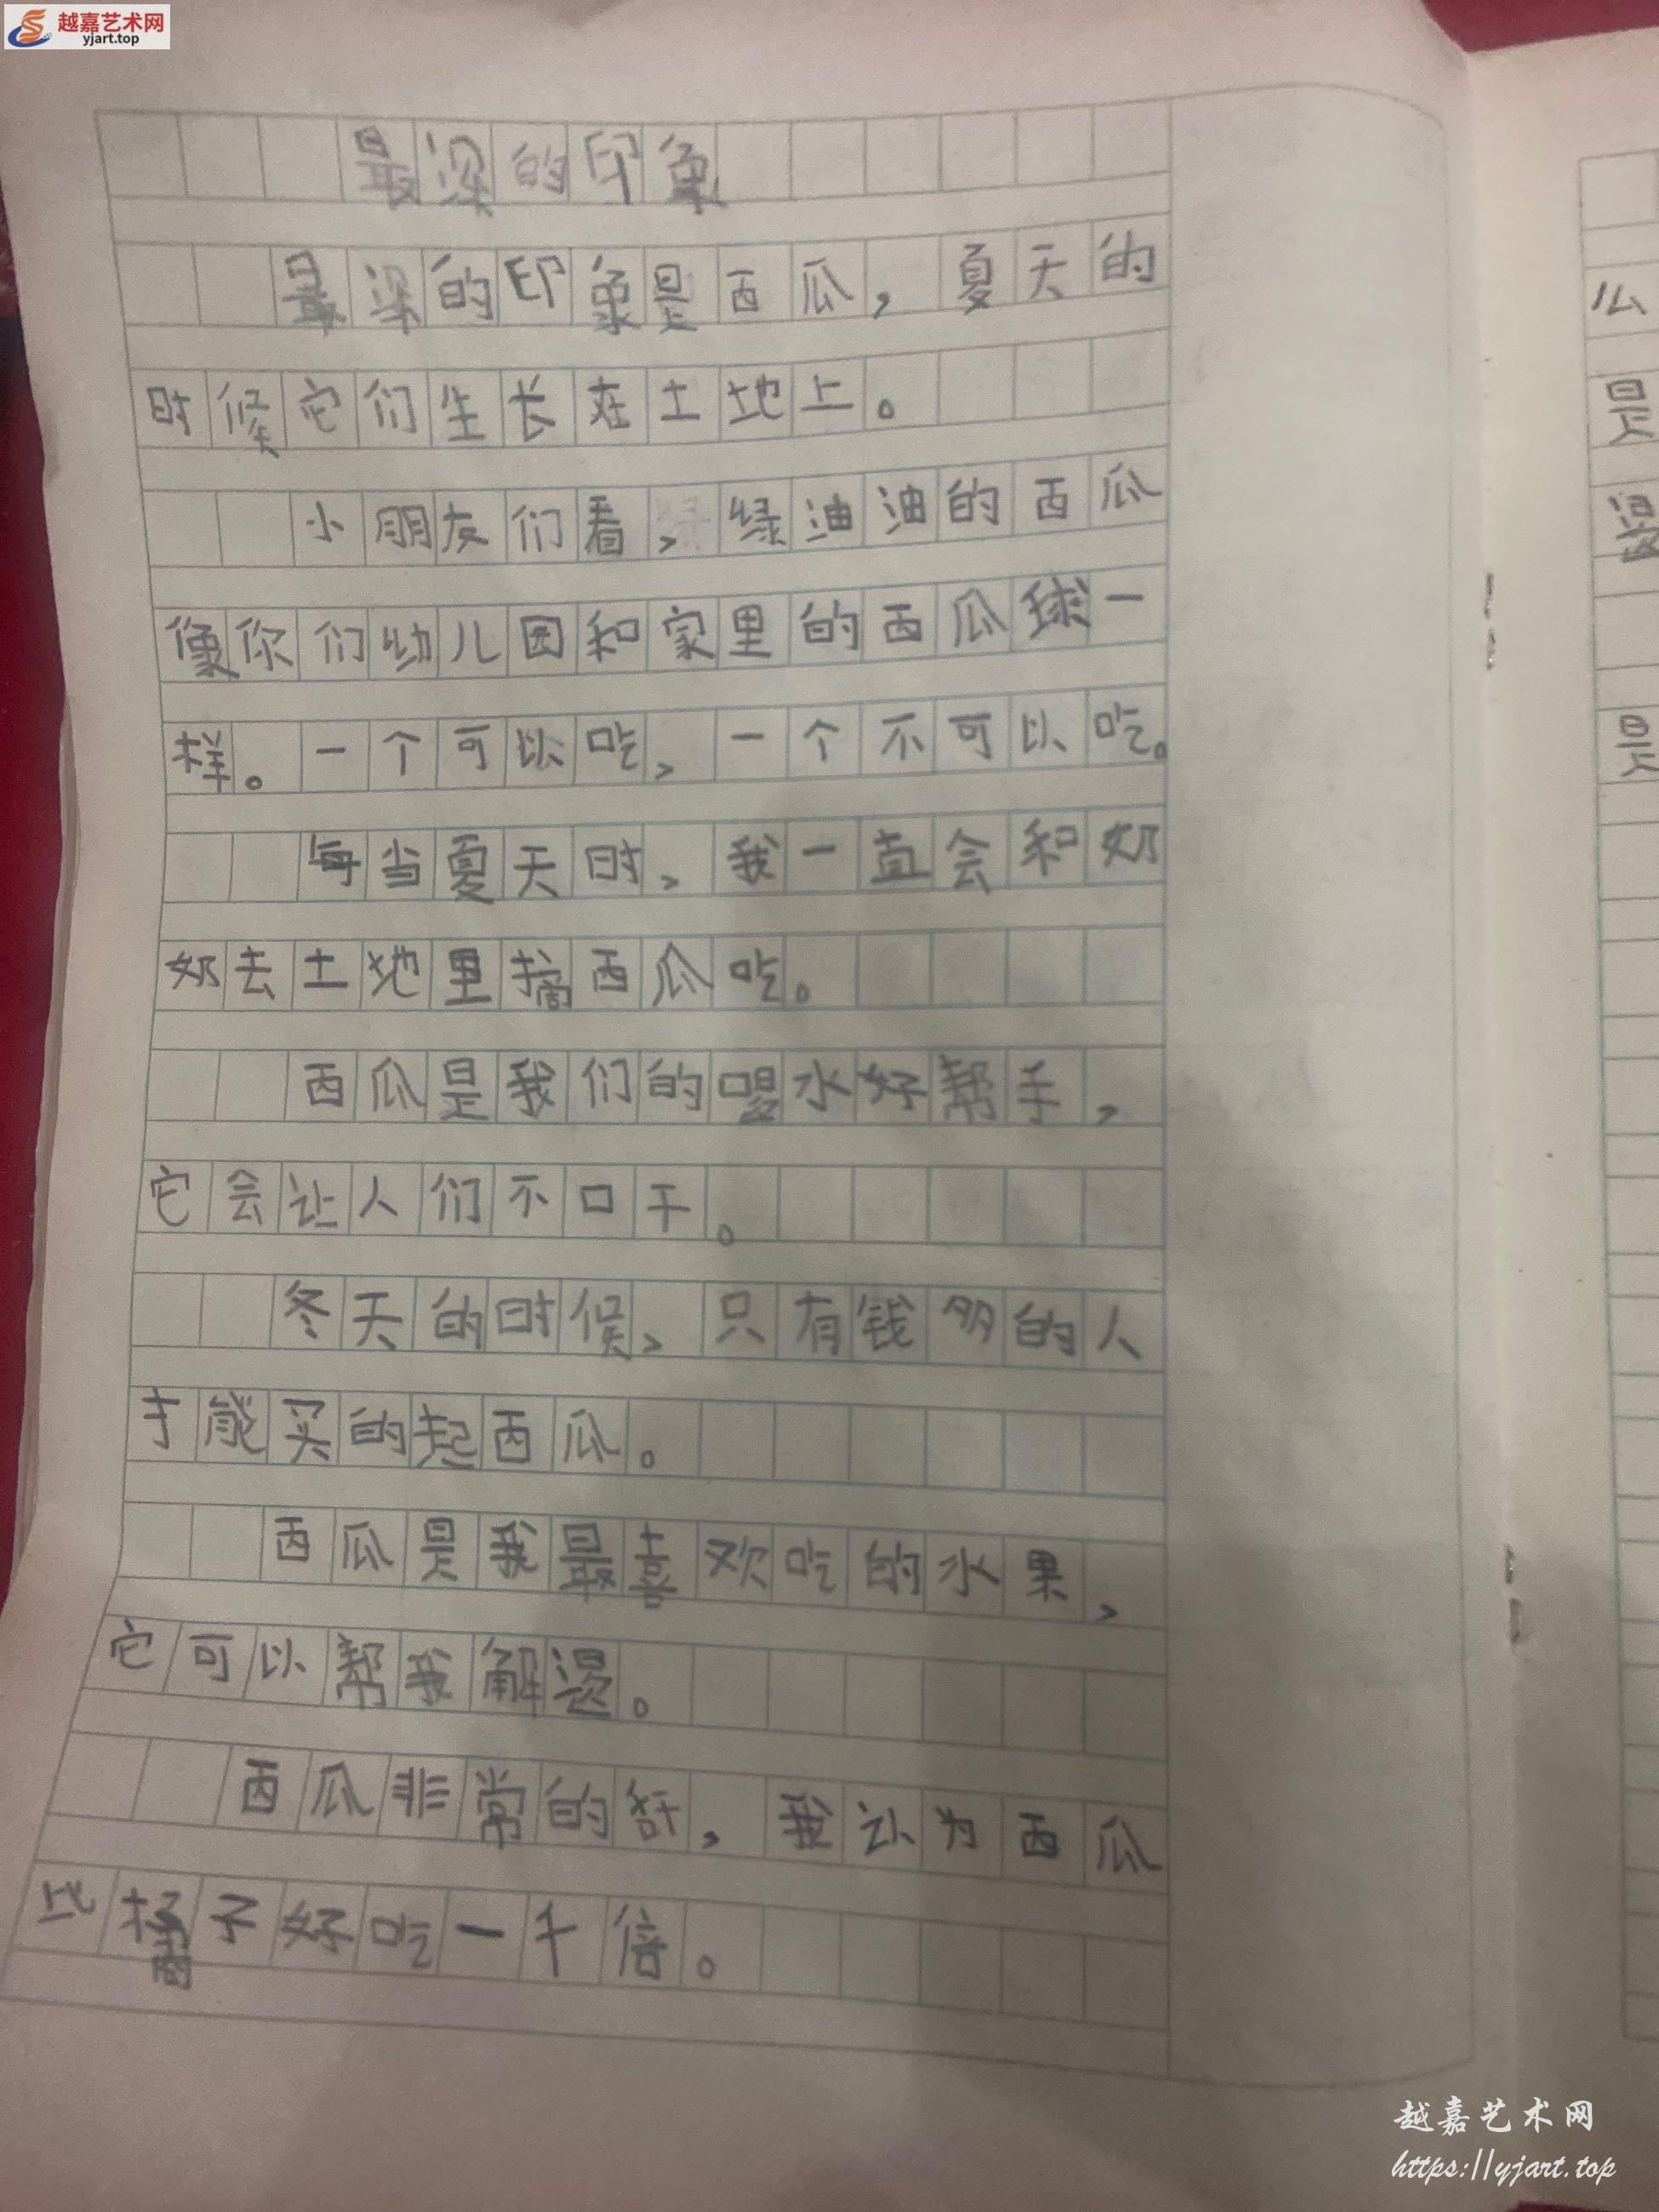 越嘉艺术网
yjart.top
最深的印象
最深的印象是西瓜，夏天的
时候它们生长在土地上。
小朋友们看，绿油油的西瓜
像你们幼儿园和家里的西瓜球一
样。一个可以吃，一个不可以吃。
每当夏天时，我一直会和奶
奶去土地里摘西瓜吃。
西瓜是我们的喝水好帮手，
它会让人们不口干。
冬天的时候，只有钱多的人
才能买的起西瓜。
西瓜是我最喜欢吃的水果，
它可以帮我解渴。
西瓜非常的甜，我认为西瓜
比橘子好吃一千倍。
么
是
是
越嘉艺术网
https://yjart.top